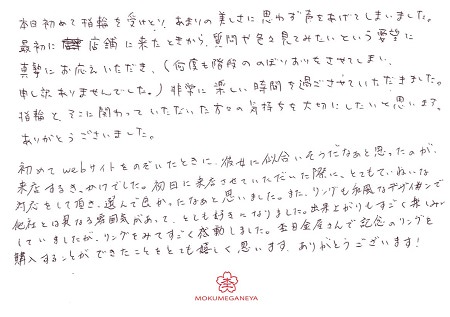 本日初めて指輪を受けとり、あまりの美しさに思わず声をあげてしまいました。
最初に店舗に来たときから、質問や色々見てみたいという要望に
真摯にお応えいただき、(何度も階段ののぼりおりをさせてしまい、
申し訳ありませんでした。)非常に楽しい時間を過ごさせていただきました。
指輪と、そこに関わっていただいた方々の気持ちを大切にしたいと思います。
ありがとうございました。
初めてwebサイトをのぞいたときに、彼女に似合いそうだなぁと思ったのが、
来店するきっかけでした。初日に来店させていただいた際に、とてもていねいな
対応をして頂き、選んで良かったなぁと思いました。また、リングも和風なデザインで
他社とは異なる雰囲気があって、とても好きになりました。出来上がりもすごく楽しみに
していましたが、リングをみてすごく感動しました。杢目金屋さんで記念のリングを
購入することができたことをとても嬉しく思います。ありがとうございます!
MOKUMEGANEYA